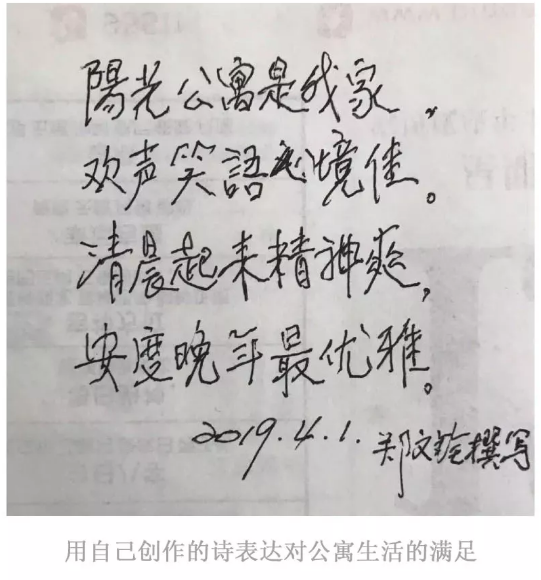 陽光公寓是我家，
欢声笑語心境佳。
清晨起来精神爽，
安度晚年最优雅。
2019.4.1. 郑文 撰写
用自己创作的诗表达对公寓生活的满足